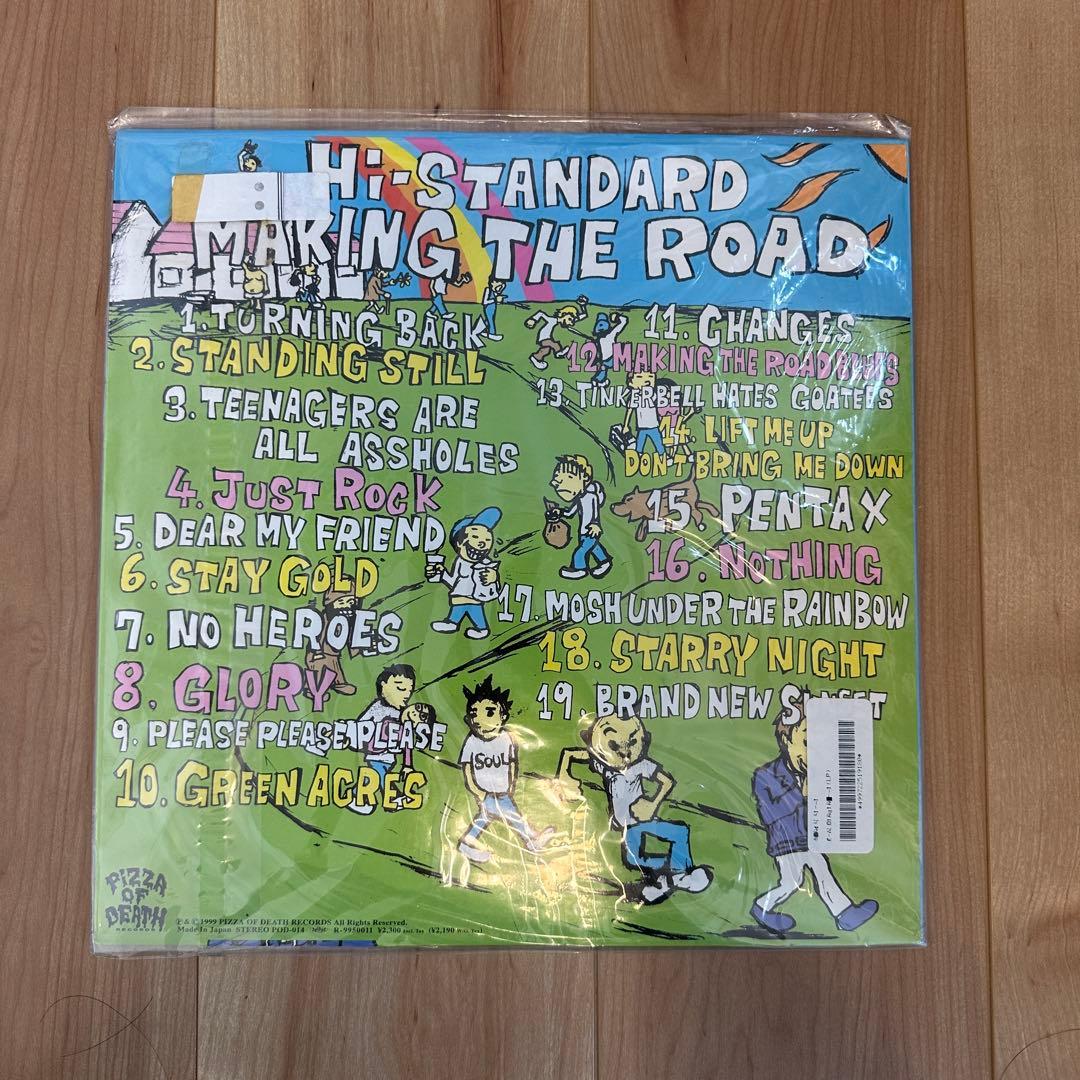 Hi-STANDARD
MAKING THE ROAD
1. TURNING BACK
2. STANDING STILL
3. TEENAGERS ARE
ALL ASSHOLES
4. JUST ROCK
5. DEAR MY FRIEND
6. STAY GOLD
7. NO HEROES
8. GLORY
9. PLEASE PLEASE PLEASE
10. GREEN ACRES
11. CHANGES
12. MAKING THE ROAD BLUES
13. TINKERBELL HATES GOATEES
14. LIFT ME UP
DON'T BRING ME DOWN
15. PENTAX
16. NOTHING
17. MOSH UNDER THE RAINBOW
18. STARRY NIGHT
19. BRAND NEW SUNSET
SOUL
PIZZA
OF
DEATH
RECORDS
℗ & © 1999 PIZZA OF DEATH RECORDS All Rights Reserved.
Made In Japan STEREO POD-014 R-9950011 ¥2,300 Incl. Tax (¥2,190 W/O. Tax)